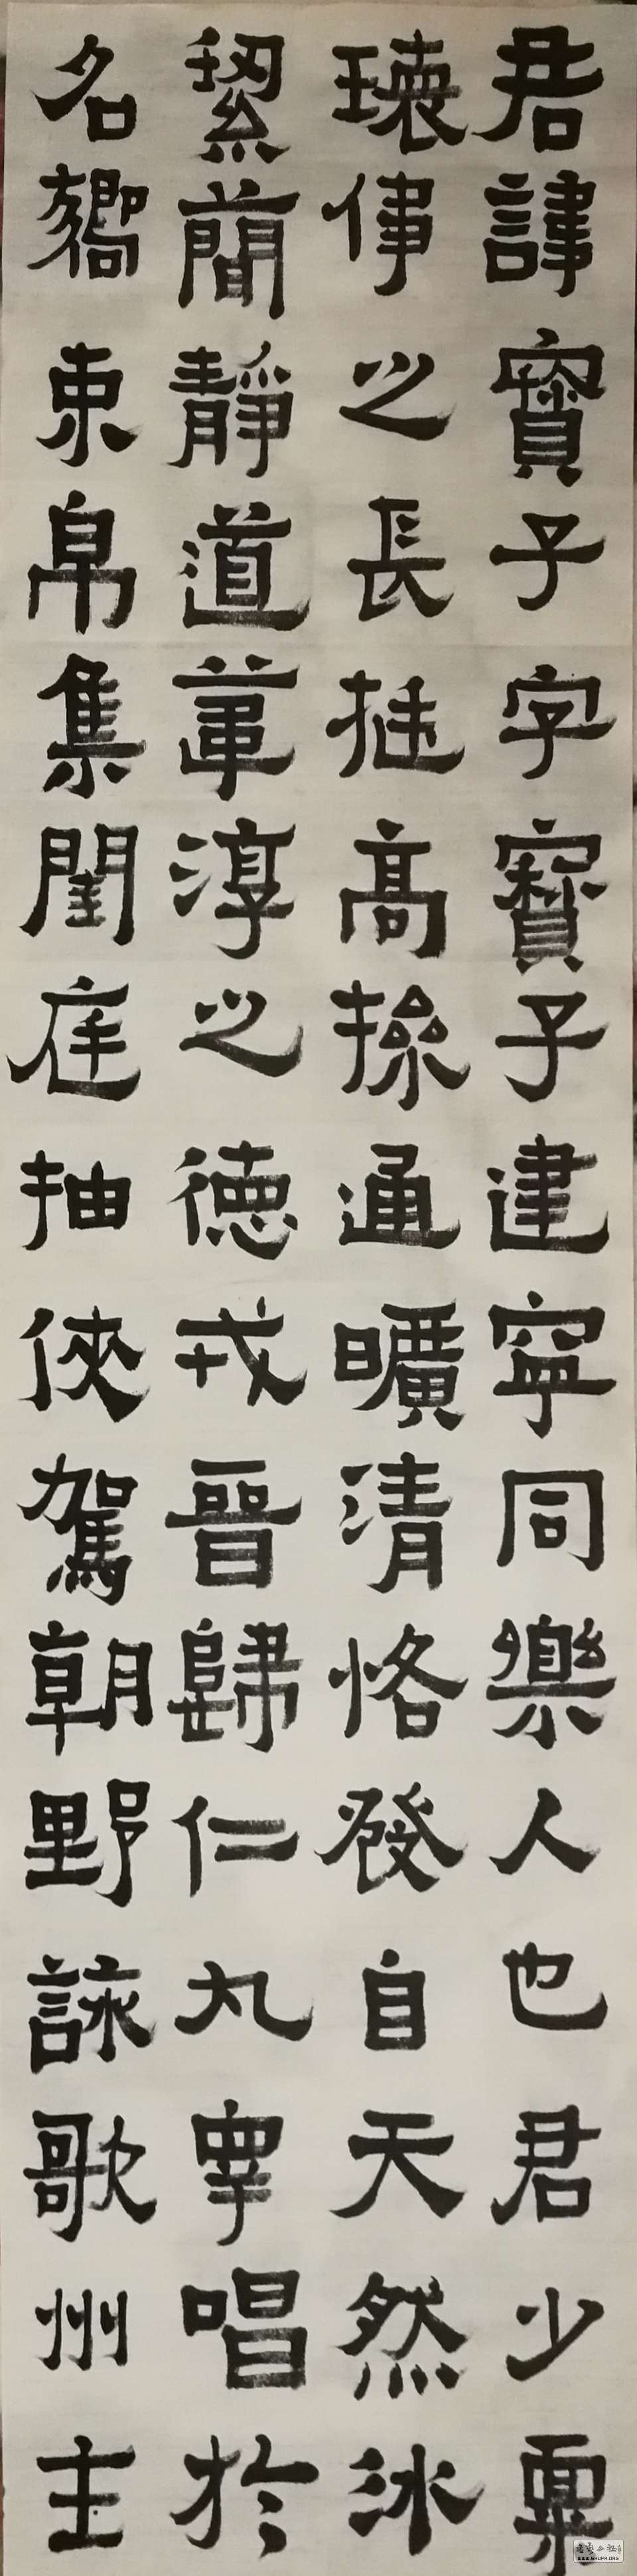 君諱寶子字寶子建寧同樂人也君少稟
瓌偉之長挺高操通曠清恪發自天然冰
絜簡靜道葦淳之德戎晉歸仁九皋唱於
名嚮束帛集閨庭抽俠駕朝野詠歌州主
WWW.SHUFA.ORG